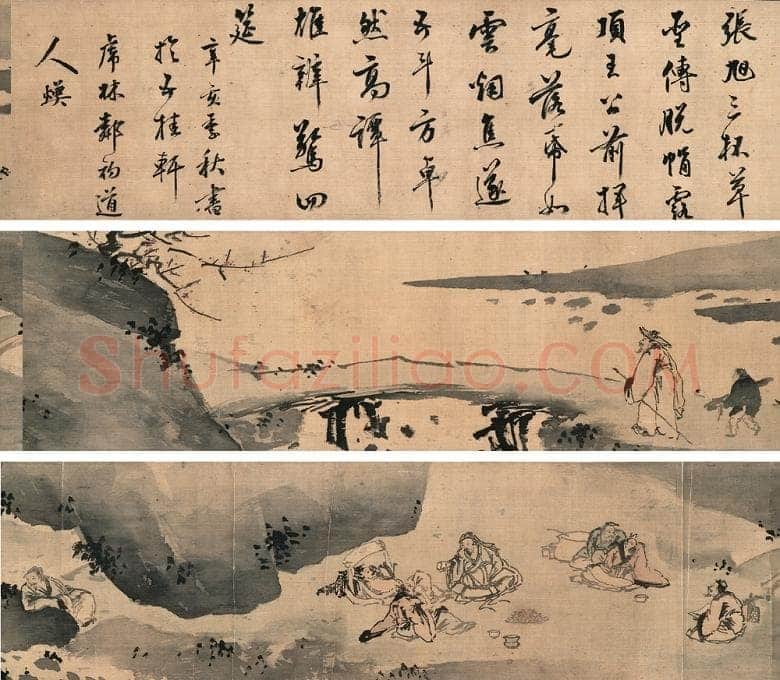 張旭三杯草
聖傳脫帽露
頂王公前揮
毫落帋如
雲烟焦遂
五斗方卓
然高譚
雄辯驚四
筵
辛亥季秋書
於五桂軒
虎林鄰初道
人煐
Shufaziliao.COM